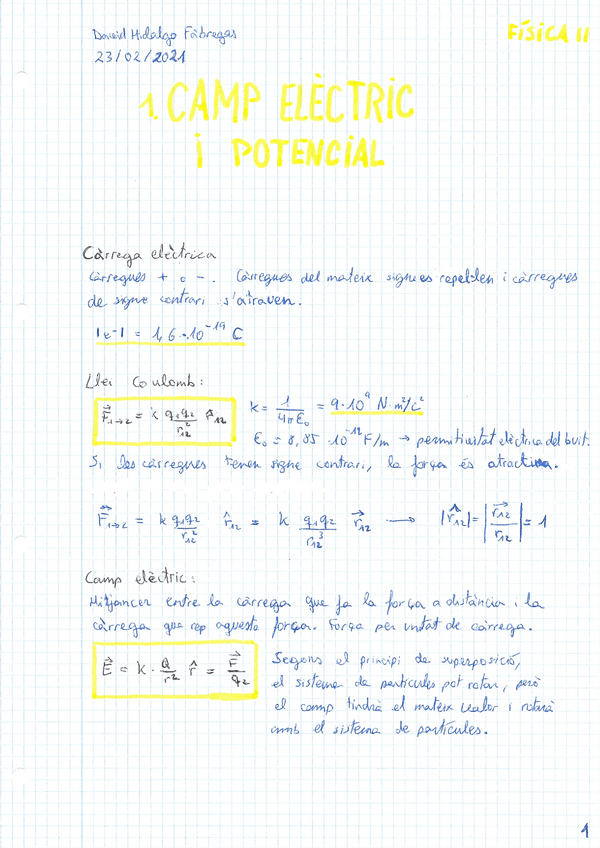 David Hidalgo Fàbregas
FÍSICA II
23/02/2021
1. CAMP ELÈCTRIC
i POTENCIAL
Càrrega elèctrica
Càrregues + o -. Càrregues del mateix signe es repel·len i càrregues
de signe contrari s'atrauen.
|e-| = 1,6·10^-19 C
Llei Coulomb:
F⃗1→2 = k q1q2/r12^2 r̂12
k = 1/4πε0 = 9·10^9 N·m²/c²
ε0 = 8,85·10^-12 F/m → permitivitat elèctrica del buit.
Si les càrregues tenen signe contrari, la força és atractiva.
F⃗1→2 = k q1q2/r12^2 r̂12 = k q1q2/r12^3 r⃗12 → |r̂12| = |r⃗12/r12| = 1
Camp elèctric:
Mitjancer entre la càrrega que fa la força a distància i la
càrrega que rep aquesta força. Força per unitat de càrrega.
E⃗ = k · Q/r² r̂ = F⃗/q2
Segons el principi de superposició,
el sistema de partícules pot rotar, però
el camp tindrà el mateix valor i rotarà
amb el sistema de partícules.
1